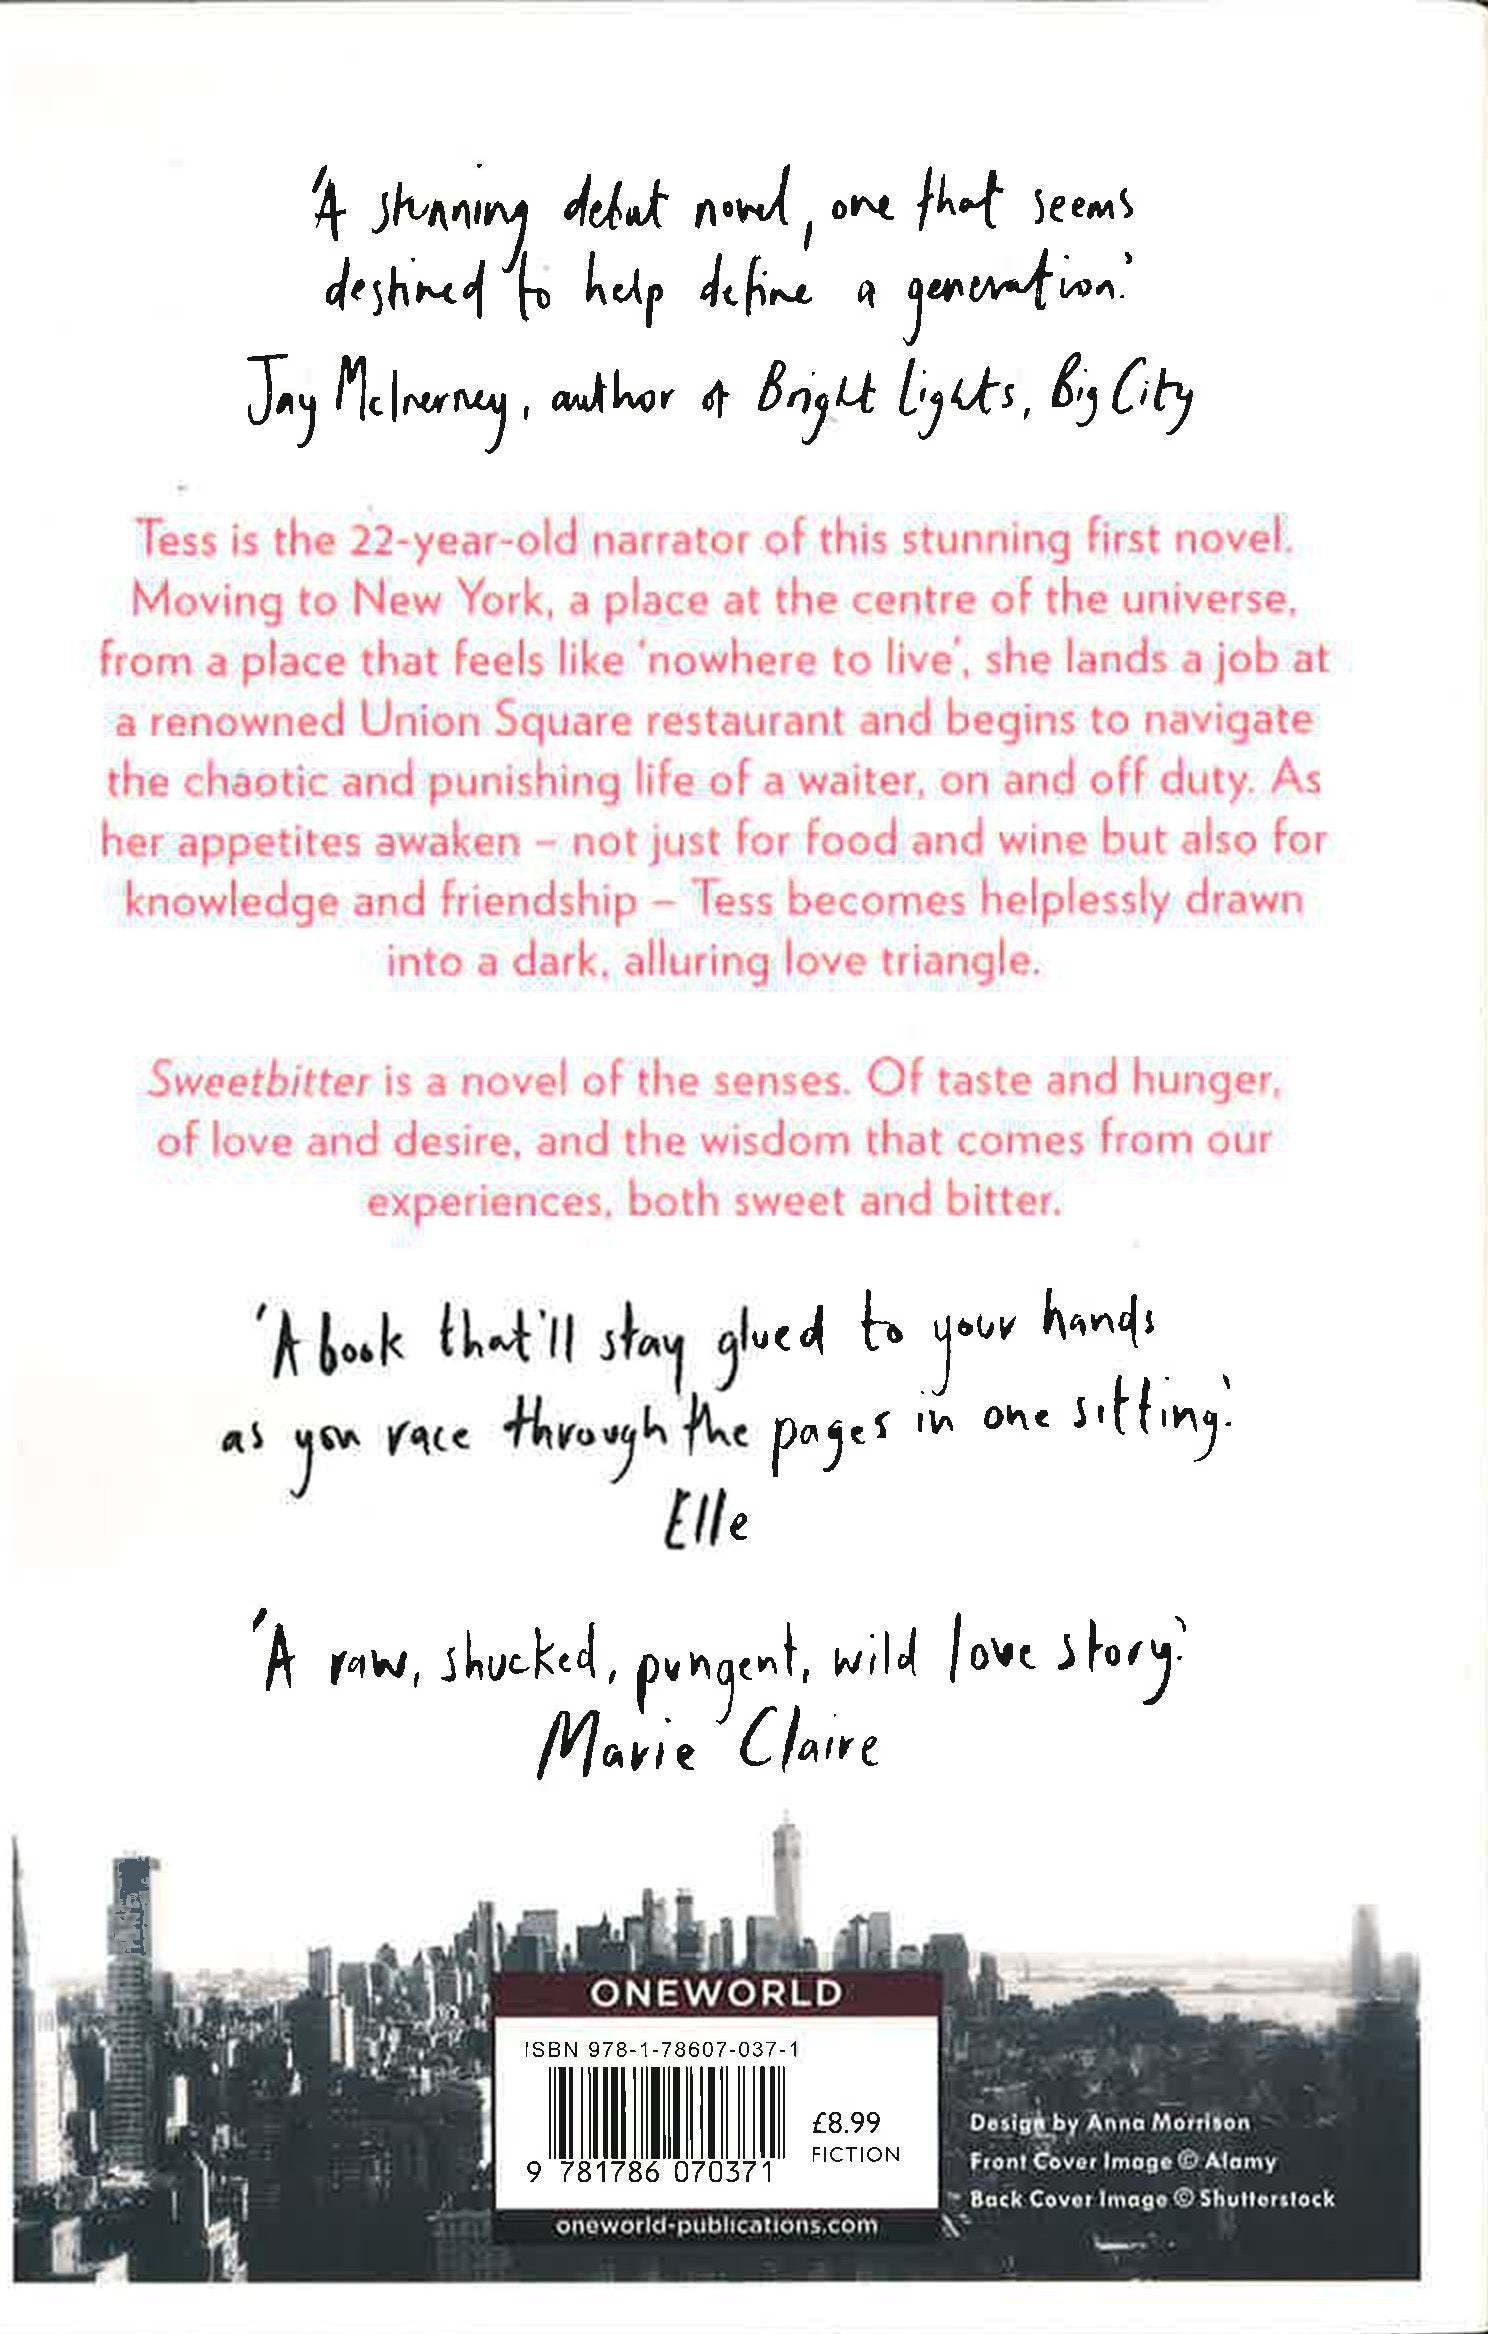 'A stunning debut novel, one that seems
destined to help define a generation.'
Jay McInerney, author of Bright Lights, Big City
Tess is the 22-year-old narrator of this stunning first novel.
Moving to New York, a place at the centre of the universe,
from a place that feels like 'nowhere to live', she lands a job at
a renowned Union Square restaurant and begins to navigate
the chaotic and punishing life of a waiter, on and off duty. As
her appetites awaken – not just for food and wine but also for
knowledge and friendship – Tess becomes helplessly drawn
into a dark, alluring love triangle.
Sweetbitter is a novel of the senses. Of taste and hunger,
of love and desire, and the wisdom that comes from our
experiences, both sweet and bitter.
'A book that'll stay glued to your hands
as you race through the pages in one sitting.'
Elle
'A raw, shucked, pungent, wild love story.'
Marie Claire
ONEWORLD
ISBN 978-1-78607-037-1
£8.99
FICTION
9 781786 070371
oneworld-publications.com
Design by Anna Morrison
Front Cover Image © Alamy
Back Cover Image © Shutterstock